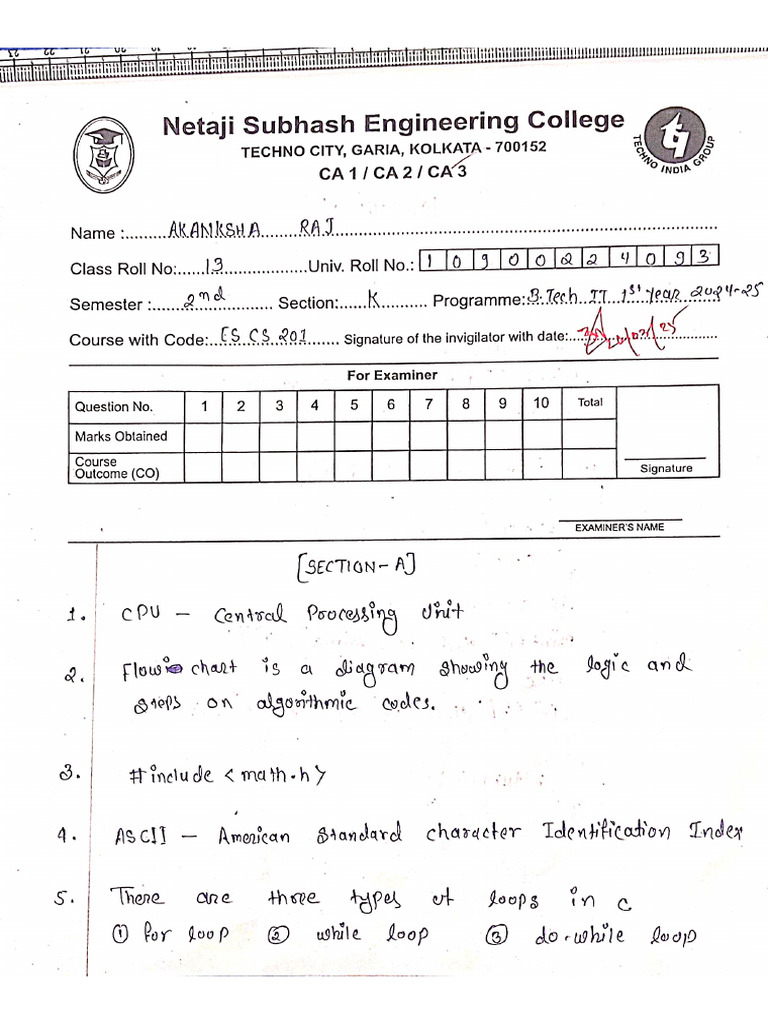 Netaji Subhash Engineering College
TECHNO CITY, GARIA, KOLKATA - 700152
CA 1 / CA 2 / CA 3
TECHNO INDIA GROUP
Name : AKANKSHA RAJ
Class Roll No: 13 Univ. Roll No.: 10900224093
Semester : 2nd Section: K Programme: B.Tech IT 1st Year 2024-25
Course with Code: ES CS 201 Signature of the invigilator with date:
For Examiner
Question No. 1 2 3 4 5 6 7 8 9 10 Total
Marks Obtained
Course
Outcome (CO)
Signature
EXAMINER'S NAME
[SECTION-A]
1. CPU — Central Processing Unit
2. Flow chart is a diagram showing the logic and
steps on algorithmic codes.
3. #include <math.h>
4. ASCII — American Standard character Identification Index
5. There are three types of loops in c
① for loop ② while loop ③ do-while loop